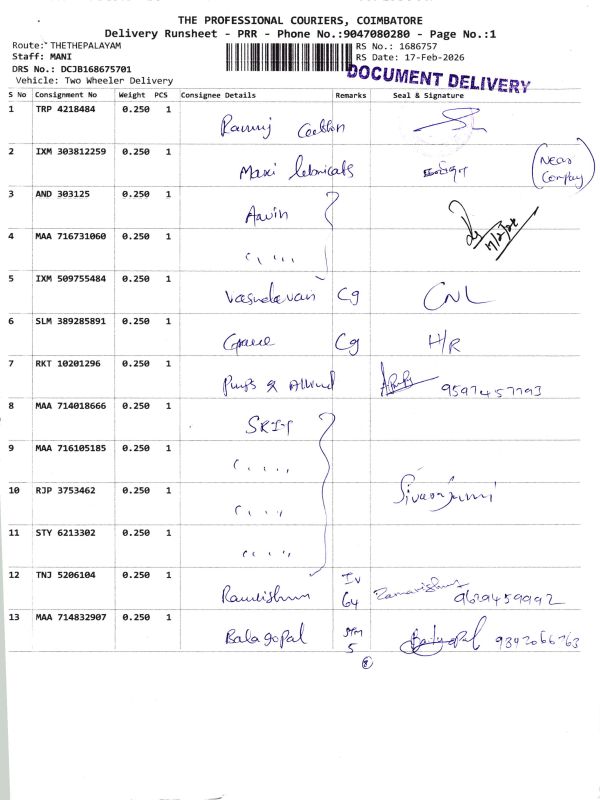 THE PROFESSIONAL COURIERS, COIMBATORE
Delivery Runsheet - PRR - Phone No.:9047080280 - Page No.:1
Route: THETHEPALAYAM RS No.: 1686757
Staff: MANI RS Date: 17-Feb-2026
DRS No.: DCJB168675701
DOCUMENT DELIVERY
Vehicle: Two Wheeler Delivery
S No Consignment No Weight PCS Consignee Details Remarks Seal & Signature
1 TRP 4218484 0.250 1
2 IXM 303812259 0.250 1 Maxi (Near Company)
3 AND 303125 0.250 1 Aavin
4 MAA 716731060 0.250 1 " "
5 IXM 509755484 0.250 1 Vasudevan Cg CNL
6 SLM 389285891 0.250 1 Cg H/R
7 RKT 10201296 0.250 1 9597457793
8 MAA 714018666 0.250 1 SRIT
9 MAA 716105185 0.250 1 " "
10 RJP 3753462 0.250 1 " "
11 STY 6213302 0.250 1 " "
12 TNJ 5206104 0.250 1 IV 64 9629459992
13 MAA 714832907 0.250 1 Balagopal 5 9392066763